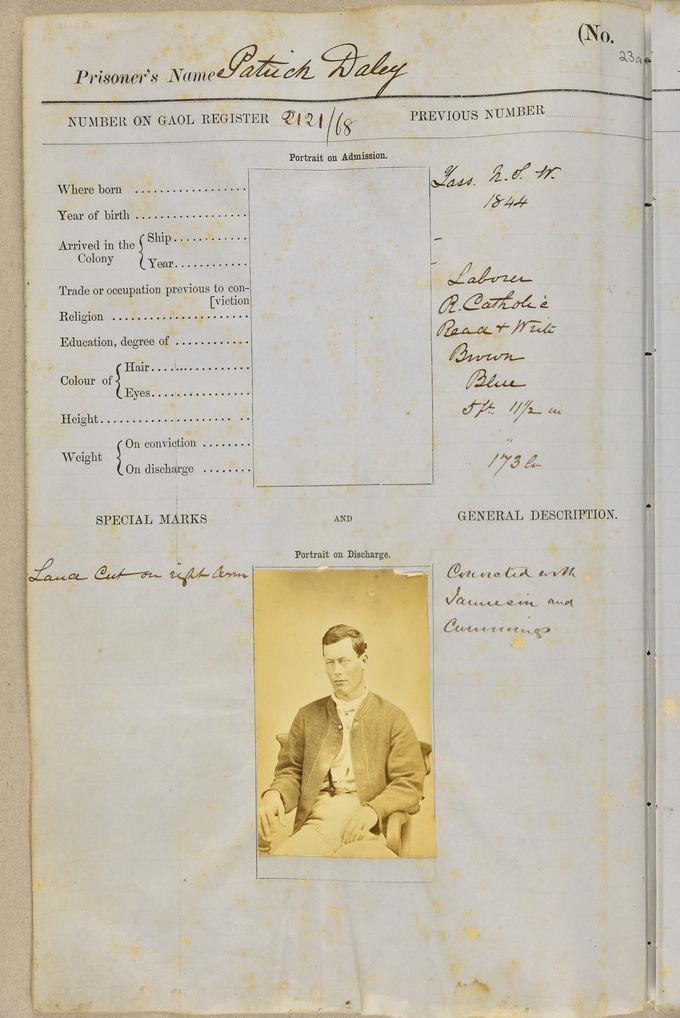 (No.
23a
Prisoner's Name Patrick Daley
NUMBER ON GAOL REGISTER 2121/68 PREVIOUS NUMBER
Portrait on Admission.
Where born .................. Yass. N. S. W.
Year of birth .................. 1844
Arrived in the Colony { Ship............ –
Year............ –
Trade or occupation previous to con-
[viction Laborer
Religion ...................... R. Catholic
Education, degree of ............ Read + Write
Colour of { Hair................ Brown
Eyes................ Blue
Height........................ 5 ft. 11 1/2 in
Weight { On conviction ........ "
On discharge ........ 173 lb
SPECIAL MARKS AND GENERAL DESCRIPTION.
Portrait on Discharge.
Cut on right Arm
Convicted with
Jameson and
Cummings